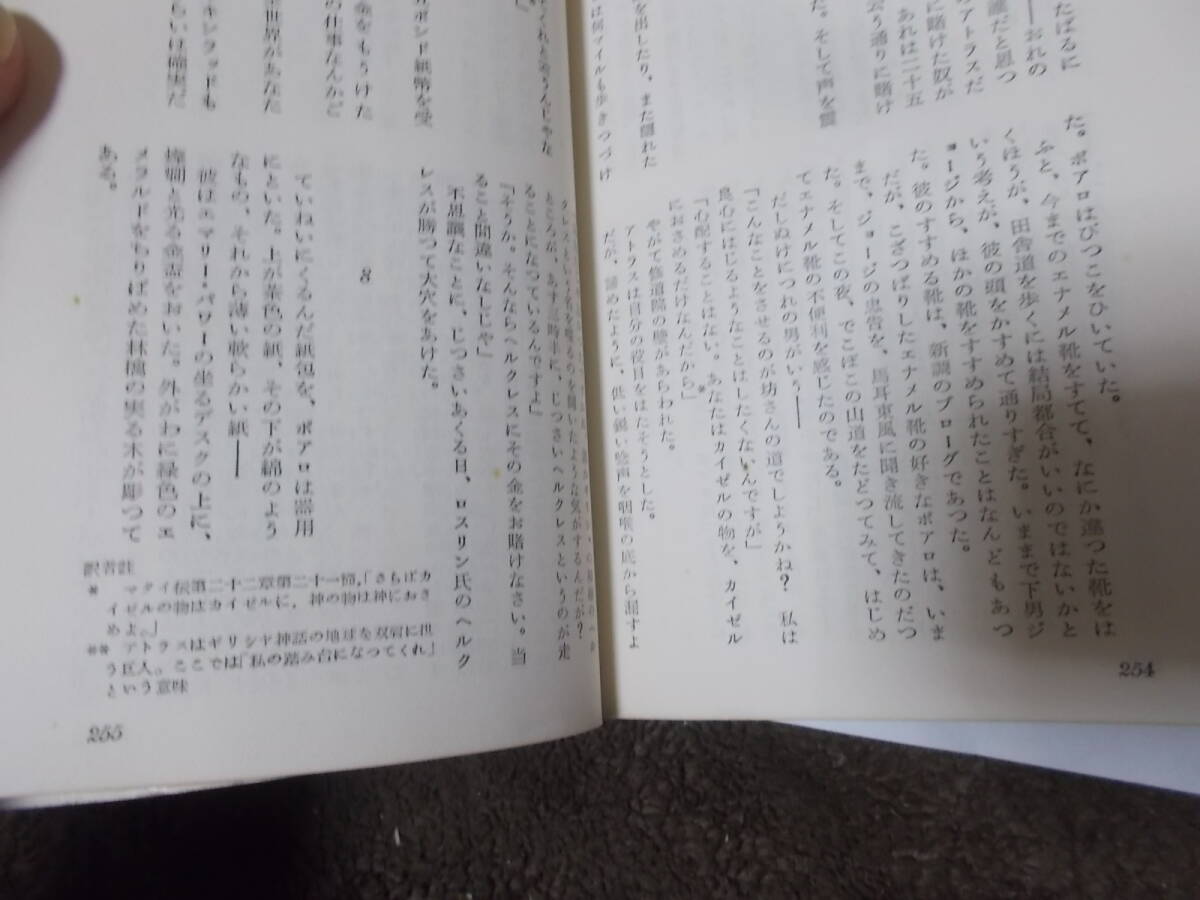 たばるに
――おれの
誰だと思つ
のアトラスだ
に賭けた奴が
あれは二十五
云う通りに賭け
た。そして声を震
を出したり、また隠れた
は何マイルも歩きつづけ
た。ポアロはびつこをひいていた。
ふと、今までのエナメル靴をすてて、なにか違つた靴をは
くほうが、田舎道を歩くには結局都合がいいのではないかと
いう考えが、彼の頭をかすめて通りすぎた。いままで下男ジ
ョージから、ほかの靴をすすめられたことはなんどもあつ
た。彼のすすめる靴は、新調のブローグであつた。
だが、こざつぱりしたエナメル靴の好きなポアロは、いま
まで、ジョージの忠告を、馬耳東風に聞き流してきたのだつ
た。そしてこの夜、でこぼこの山道をたどつてみて、はじめ
てエナメル靴の不便利を感じたのである。
だしぬけにつれの男がいう――
「こんなことをさせるのが坊さんの道でしようかね? 私は
良心にはじるようなことはしたくないんですが」
「心配することはない。あなたはカイゼルの物を、カイゼル
におさめるだけなんだから」*
やがて修道院の壁があらわれた。
アトラスは自分の役目をはたそうとした。
だが、諦めたように、低い鋭い唸声を咽喉の底から漏すよ
254
くれと云うんじやな
ポンド紙幣を受
金をもうけた
の仕事なんかど
世界があなた
キンラッドも
らいは確実だ
クレスという名を
ところが、あす三時半に、じつさいヘルクレスというのが走
ることになつているんですよ」
「そうか。そんならヘルクレスにその金をお賭けなさい。当
ること間違いなしじや」
不思議なことに、じつさいあくる日、ロスリン氏のヘルク
レスが勝つて大穴をあけた。
8
ていねいにくるんだ紙包を、ポアロは器用
にといた。上が茶色の紙、その下が綿のよう
なもの、それから薄い軟らかい紙――
彼はエマリー・パワーの坐るデスクの上に、
燦爛と光る金盃をおいた。外がわに緑色のエ
メラルドをちりばめた林檎の実る木が彫つて
ある。
訳者註
* マタイ伝第二十二章第二十一節,「さらばカ
イゼルの物はカイゼルに,神の物は神におさ
めよ。」
** アトラスはギリシヤ神話の地球を双肩に担
う巨人。ここでは「私の踏み台になつてくれ」
という意味
255